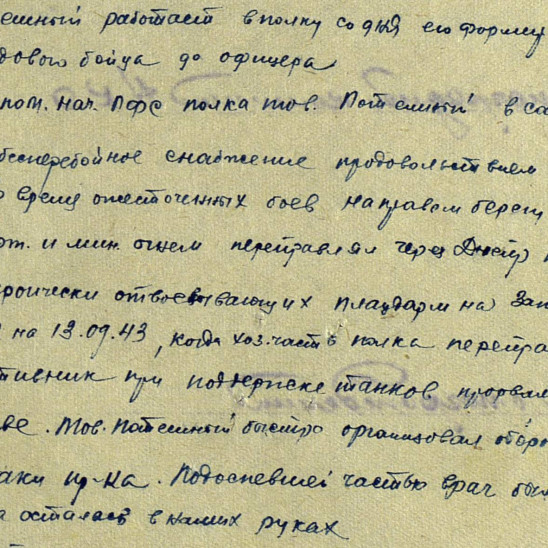 ешный работает в полку со дня его формир
дового бойца до офицера
пом. нач. ПФС полка тов. Потешный в со
бесперебойное снабжение продовольствием
о время ожесточенных боев на правом берегу
рт. и мин. огнем переправлял через Днестр
роически отвоевывающих плацдарм на Зап
на 13.09.43, когда хоз. часть полка перепра
тивник при поддержке танков прорвал
ве. Тов. Потешный быстро организовал оборо
аки пр-ка. Подоспевшей частью враг был
а осталась в наших руках